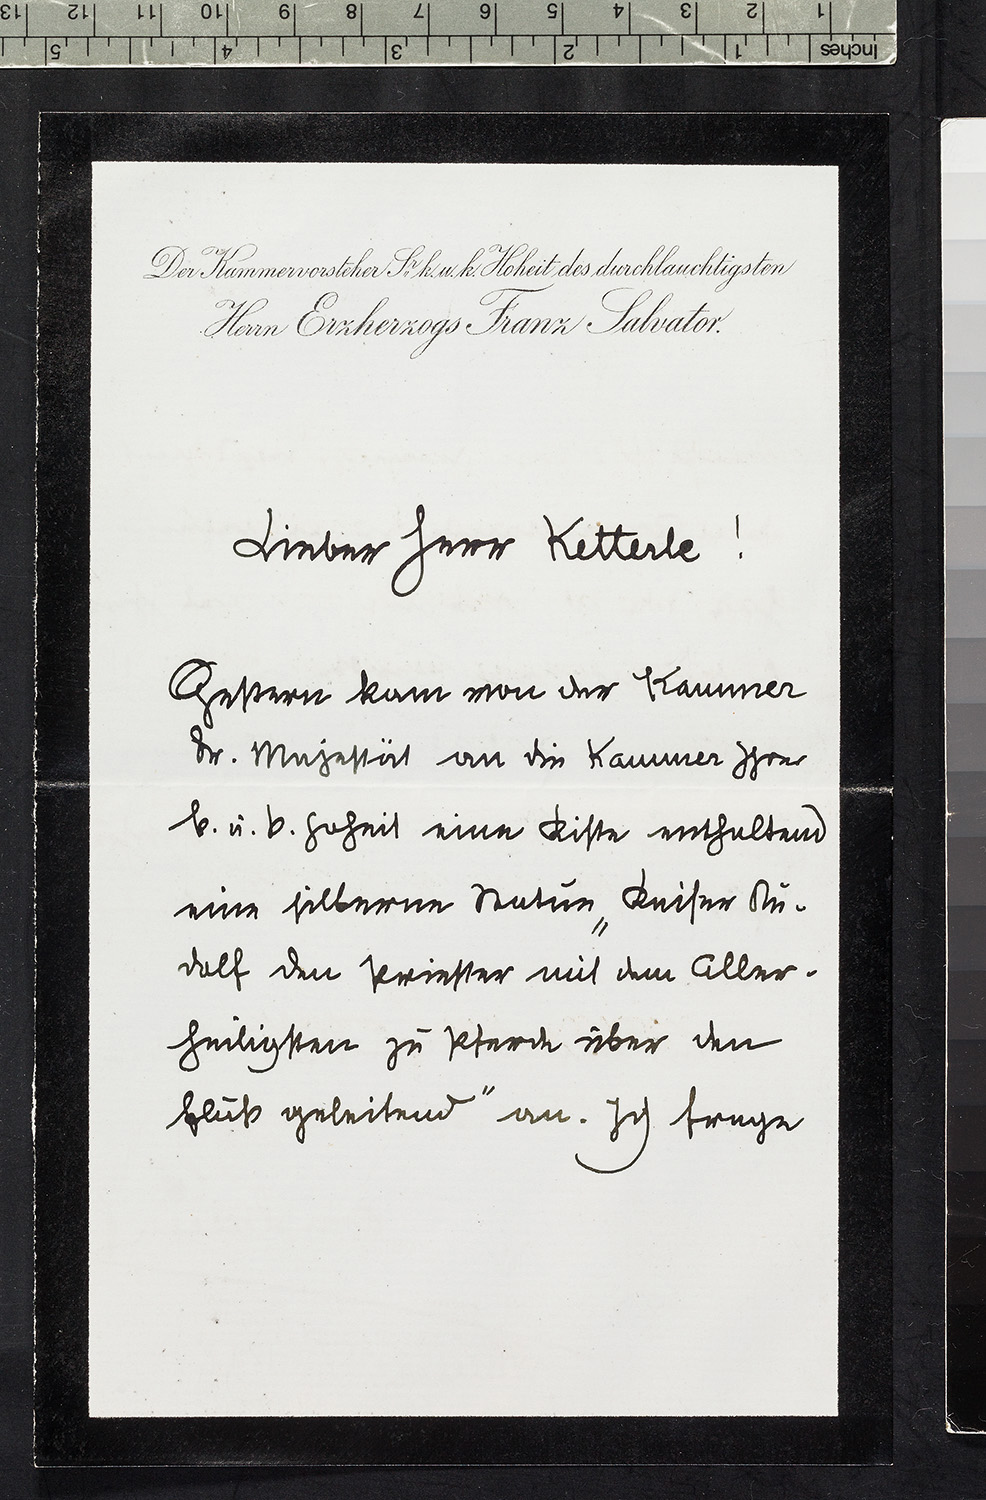 13 12 11 10 9 8 7 6 5 4 3 2 1
5 4 3 2 1 Inches
Der Kammervorsteher Sr. k. u. k. Hoheit des durchlauchtigsten
Herrn Erzherzogs Franz Salvator.
Lieber Herr Ketterle!
Gestern kam von der Kammer
Sr. Majestät an die Kammer Ihrer
k. u. k. Hoheit eine Kiste enthaltend
eine silberne Statue „Kaiser Ru-
dolf den Priester mit dem Aller-
heiligsten zu Pferde über den
Fluß geleitend" an. Ich frage